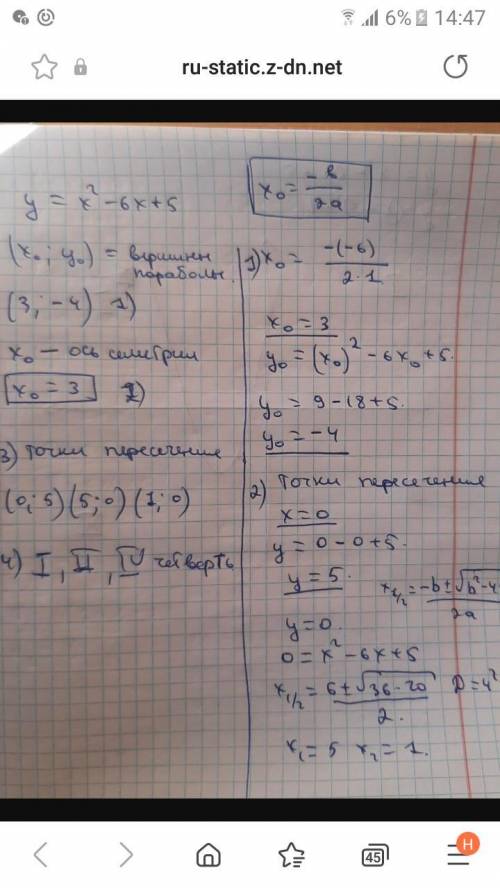 6% 14:47
ru-static.z-dn.net
y = x² - 6x + 5
(x₀; y₀) = вершины
параболы
(3; -4) 1)
x₀ - ось симетрии
x₀ = 3 2)
3) точки пересечение
(0; 5) (5; 0) (1; 0)
4) I, II, IV четверть
x₀ = -b/2a
1) x₀ = -(-6)/2·1
x₀ = 3
y₀ = (x₀)² - 6x₀ + 5.
y₀ = 9 - 18 + 5.
y₀ = -4
2) точки пересечение
x = 0
y = 0 - 0 + 5.
y = 5.
x₁/₂ = -b ± √b² - 4/2a
y = 0.
0 = x² - 6x + 5
x₁/₂ = 6 ± √36 - 20/2. D = 4²
x₁ = 5 x₂ = 1.
45
H